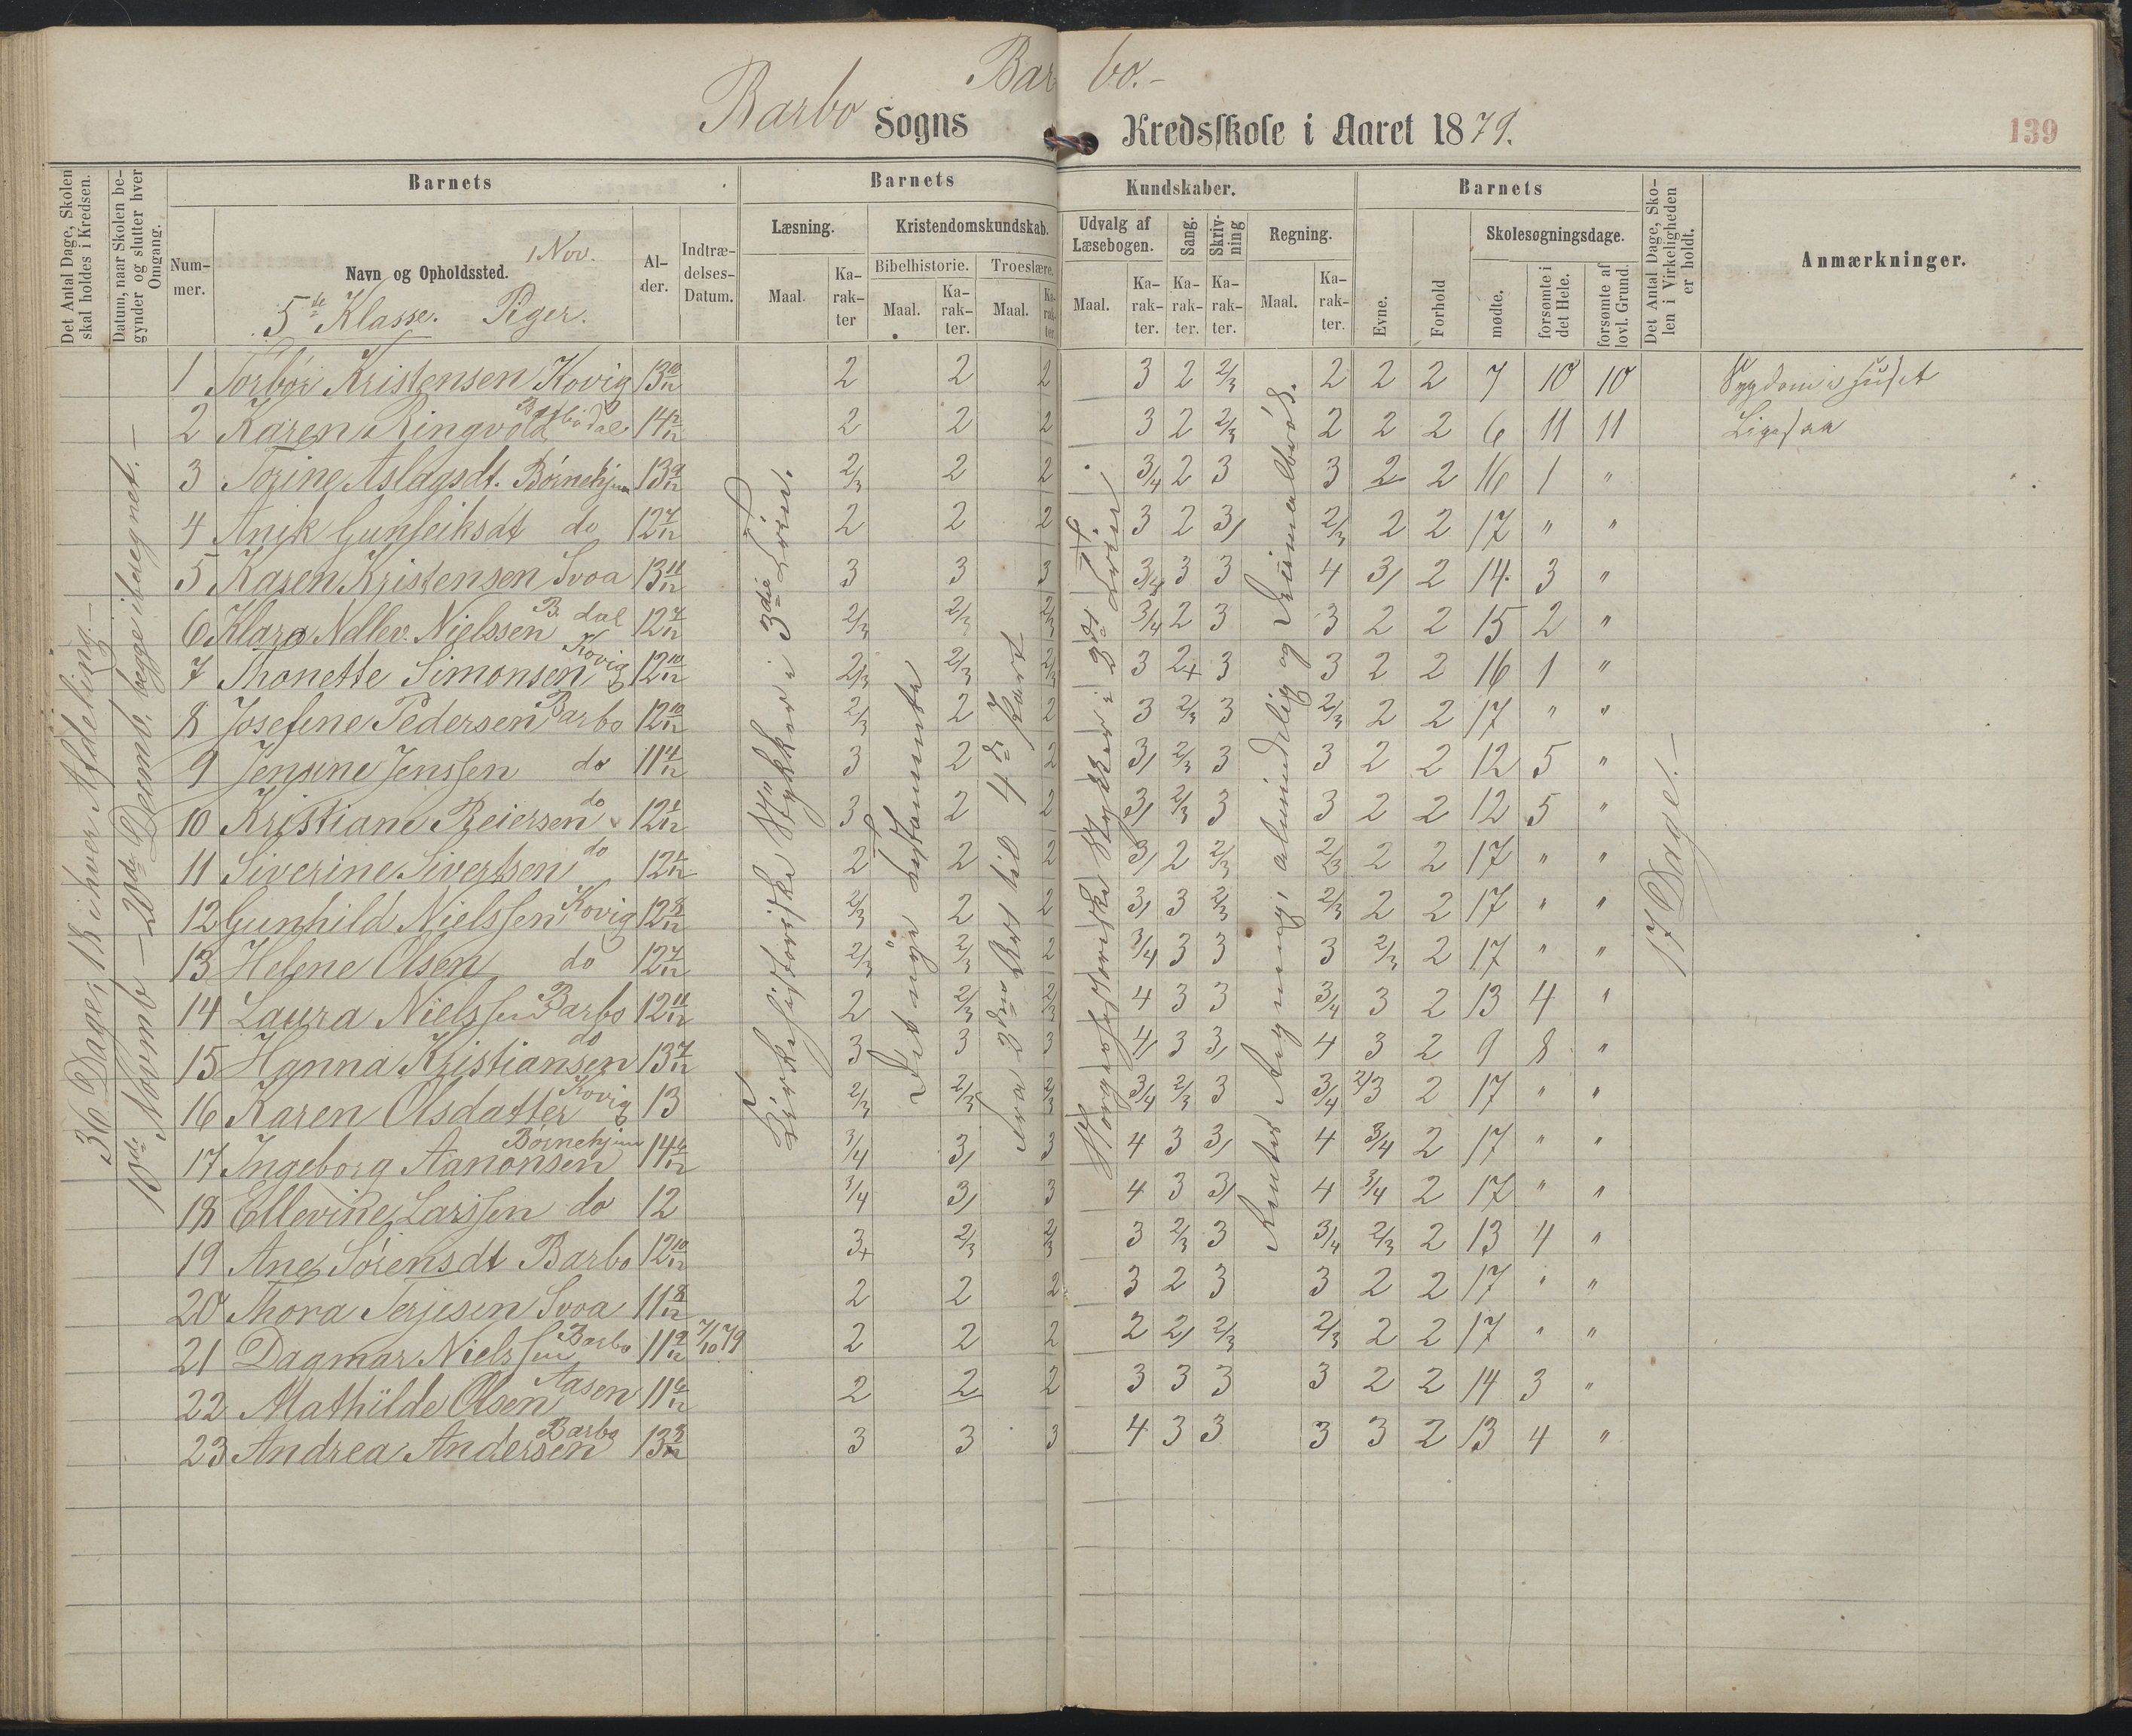 Bar bo.-
Barbo Sogns Kredsskole i Aaret 1879.
139
Det Antal Dage, Skolen skal holdes i Kredsen.
Datum, naar Skolen begynder og slutter hver Omgang.
Barnets
Nummer.
Navn og Opholdssted.
1 Nov.
5te Klasse. Piger.
Alder.
Indtrædelses-Datum.
Barnets Kundskaber.
Læsning.
Maal.
Karakter
Kristendomskundskab.
Bibelhistorie.
Maal.
Karakter.
Troeslære.
Maal.
Karakter
Udvalg af Læsebogen.
Maal.
Karakter.
Sang.
Karakter.
Skrivning
Karakter.
Regning.
Maal.
Karakter.
Barnets
Evne.
Forhold
Skolesøgningsdage.
mødte.
forsømte i det Hele.
forsømte af lovl. Grund.
Det Antal Dage, Skolen i Virkeligheden er holdt.
Anmærkninger.
36 Dage, 18 i hver Afdeling.-
10de Novemb - 20de Decemb, begge iberegnet.-
Kirkehistoriske Stykker i 3die Trin.
Det nye Testamente
fra 3die Art. til 4de Part
Norgeshistoriske Stykker i 3die Trin
Rentes Regning, almindelig og Decimalbrøk.
17 Dage.-
1 Torbör Kristensen Kovig 13 10/12 2 2 2 3 2 2/3 2 2 2 7 10 10 Sygdom i Huset
2 Karen Ringvold Barbodal 14 2/12 2 2 2 3 2 2/3 2 2 2 6 11 11 Ligesaa
3 Torine Aslagsdt. Börnehjem 13 9/12 2/3 2 2 3/4 2 3 3 2 2 16 1 "
4 Anik Gunleiksdt do 12 7/12 2 2 2 3 2 3/ 2/3 2 2 17 " "
5 Karen Kristensen Svoa 13 11/12 3 3 3 3/4 3 3 4 3/ 2 14. 3 "
6 Klara Nellev. Nielssen B. dal 12 7/12 2/3 2/3 2/3 3/4 2 3 3 2 2 15 2 "
7 Thonette Simonsen Kovig 12 10/12 2/3 2/3 2/3 3 2+ 3 3 2 2 16 1 "
8 Josefine Pedersen Barbo 12 10/12 2/3 2 2 3 2/3 3 2/3 2 2 17 " "
9 Jensine Jenssen do 11 4/12 3 2 2 3/ 2/3 3 3 2 2 12 5 "
10 Kristiane Reiersen do 12 1/12 3 2 2 3/ 2/3 3 3 2 2 12 5 "
11 Siverine Sivertsen do 12 1/12 2 2 2 3/ 2 2/3 2/3 2 2 17 " "
12 Gunhild Nielssen Kovig 12 8/12 2/3 2 2 3/ 3 2/3 2/3 2 2 17 " "
13 Helene Olsen do 12 7/12 2/3 2/3 2 3/4 3 3 3 2/3 2 17 " "
14 Laura Nielssen Barbo 12 11/12 2 2/3 2/3 4 3 3 3/4 3 2 13 4 "
15 Hanna Kristiansen do 13 7/12 3 3 3 4/ 3 3/ 4 3 2 9 8 "
16 Karen Olsdatter Kovig 13 2/3 2/3 2/3 3/4 2/3 3 3/4 2/3 2 17 " "
17 Ingeborg Aanonsen Börnehjem 14 6/12 3/4 3/ 3 4 3 3/ 4 3/4 2 17 " "
18 Ellevine Larssen do 12 3/4 3/ 3 4 3 3/ 4 3/4 2 17 " "
19 Ane Sörensdt Barbo 12 10/12 3+ 2/3 2/3 3 2/3 3 3/4 2/3 2 13 4 "
20 Thora Terjesen Svoa 11 8/12 2 2 2 3 2 3 3 2 2 17 " "
21 Dagmar Nielssen Barbo 11 9/12 7/10 79 2 2 2 2 2/ 2/3 2/3 2 2 17 " "
22 Mathilde Olsen Aasen 11 6/12 2 2 2 3 3 3 3 2 2 14 3 "
23 Andrea Andersen Barbo 13 8/12 3 3 3 4 3 3 3 3 2 13 4 "